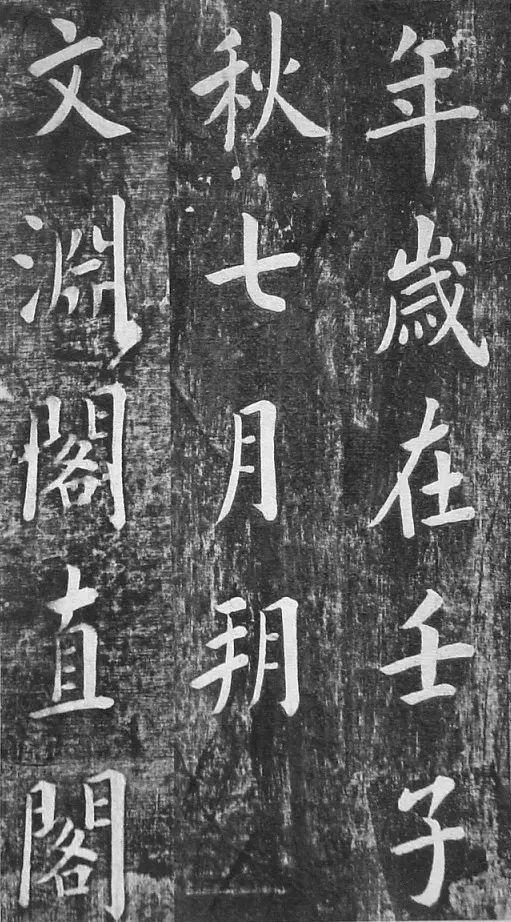 年歲在壬子
秋七月朔
文淵閣直閣